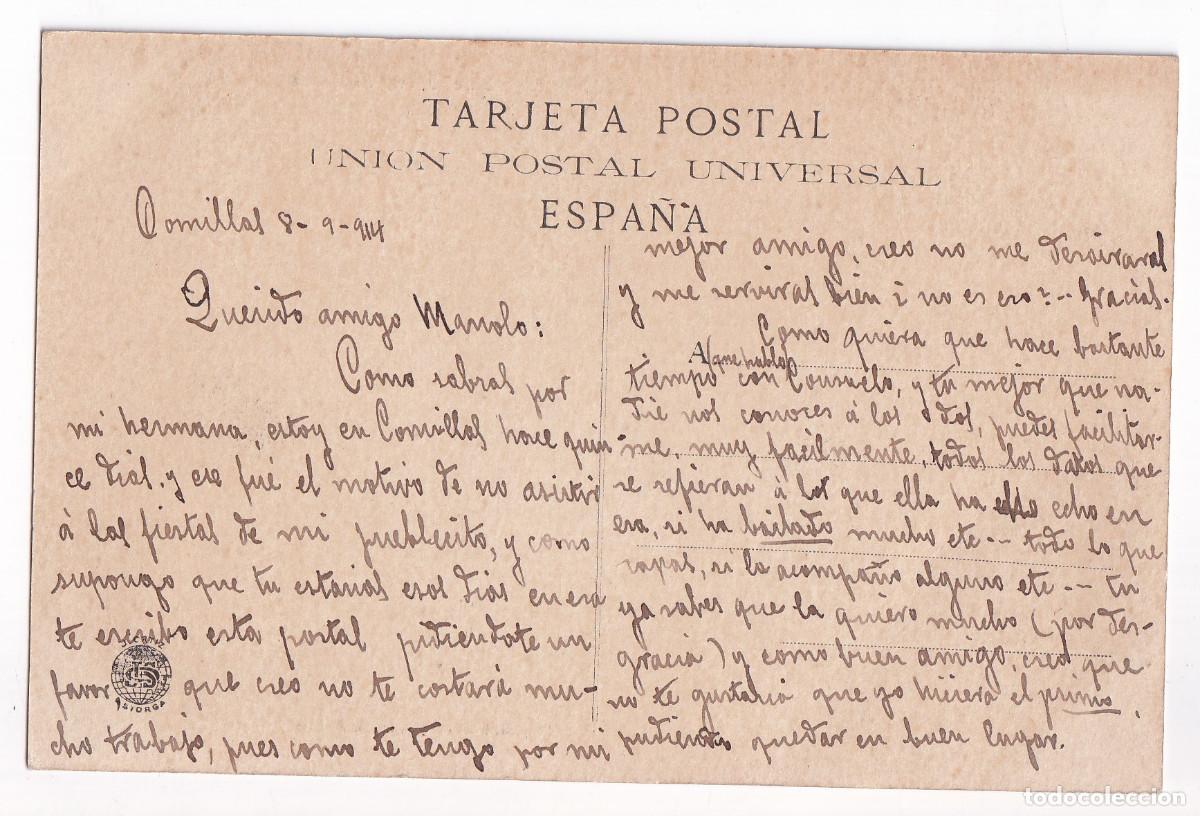 TARJETA POSTAL
UNION POSTAL UNIVERSAL
ESPAÑA
Comillas 8-9-914
Querido amigo Manolo:
Como sabras por
mi hermana, estoy en Comillas hace quin
ce dias. y ese fué el motivo de no asistir
á las fiestas de mi pueblecito, y como
supongo que tu estarias esos dias en esa
te escribo esta postal pidiendote un
favor que creo no te costará mu-
cho trabajo, pues como te tengo por mi
mejor amigo, creo no me desairaras
y me serviras bien ¿ no es eso? -- Gracias.
Como quiera que hace bastante
A (que hablo)
tiempo con Consuelo, y tu mejor que na-
die nos conoces á los dos, puedes facilitar-
me, muy facilmente, todos los datos que
se refieran á lo que ella ha echo en
esa, si ha bailado mucho etc -- todo lo que
sepas, si la acompaño alguno etc -- tu
ya sabes que la quiero mucho (por des-
gracia) y como buen amigo, creo que
no te gustaria que yo hiciera el primo,
pudiendo quedar en buen lugar.
ASTORGA
todocoleccion